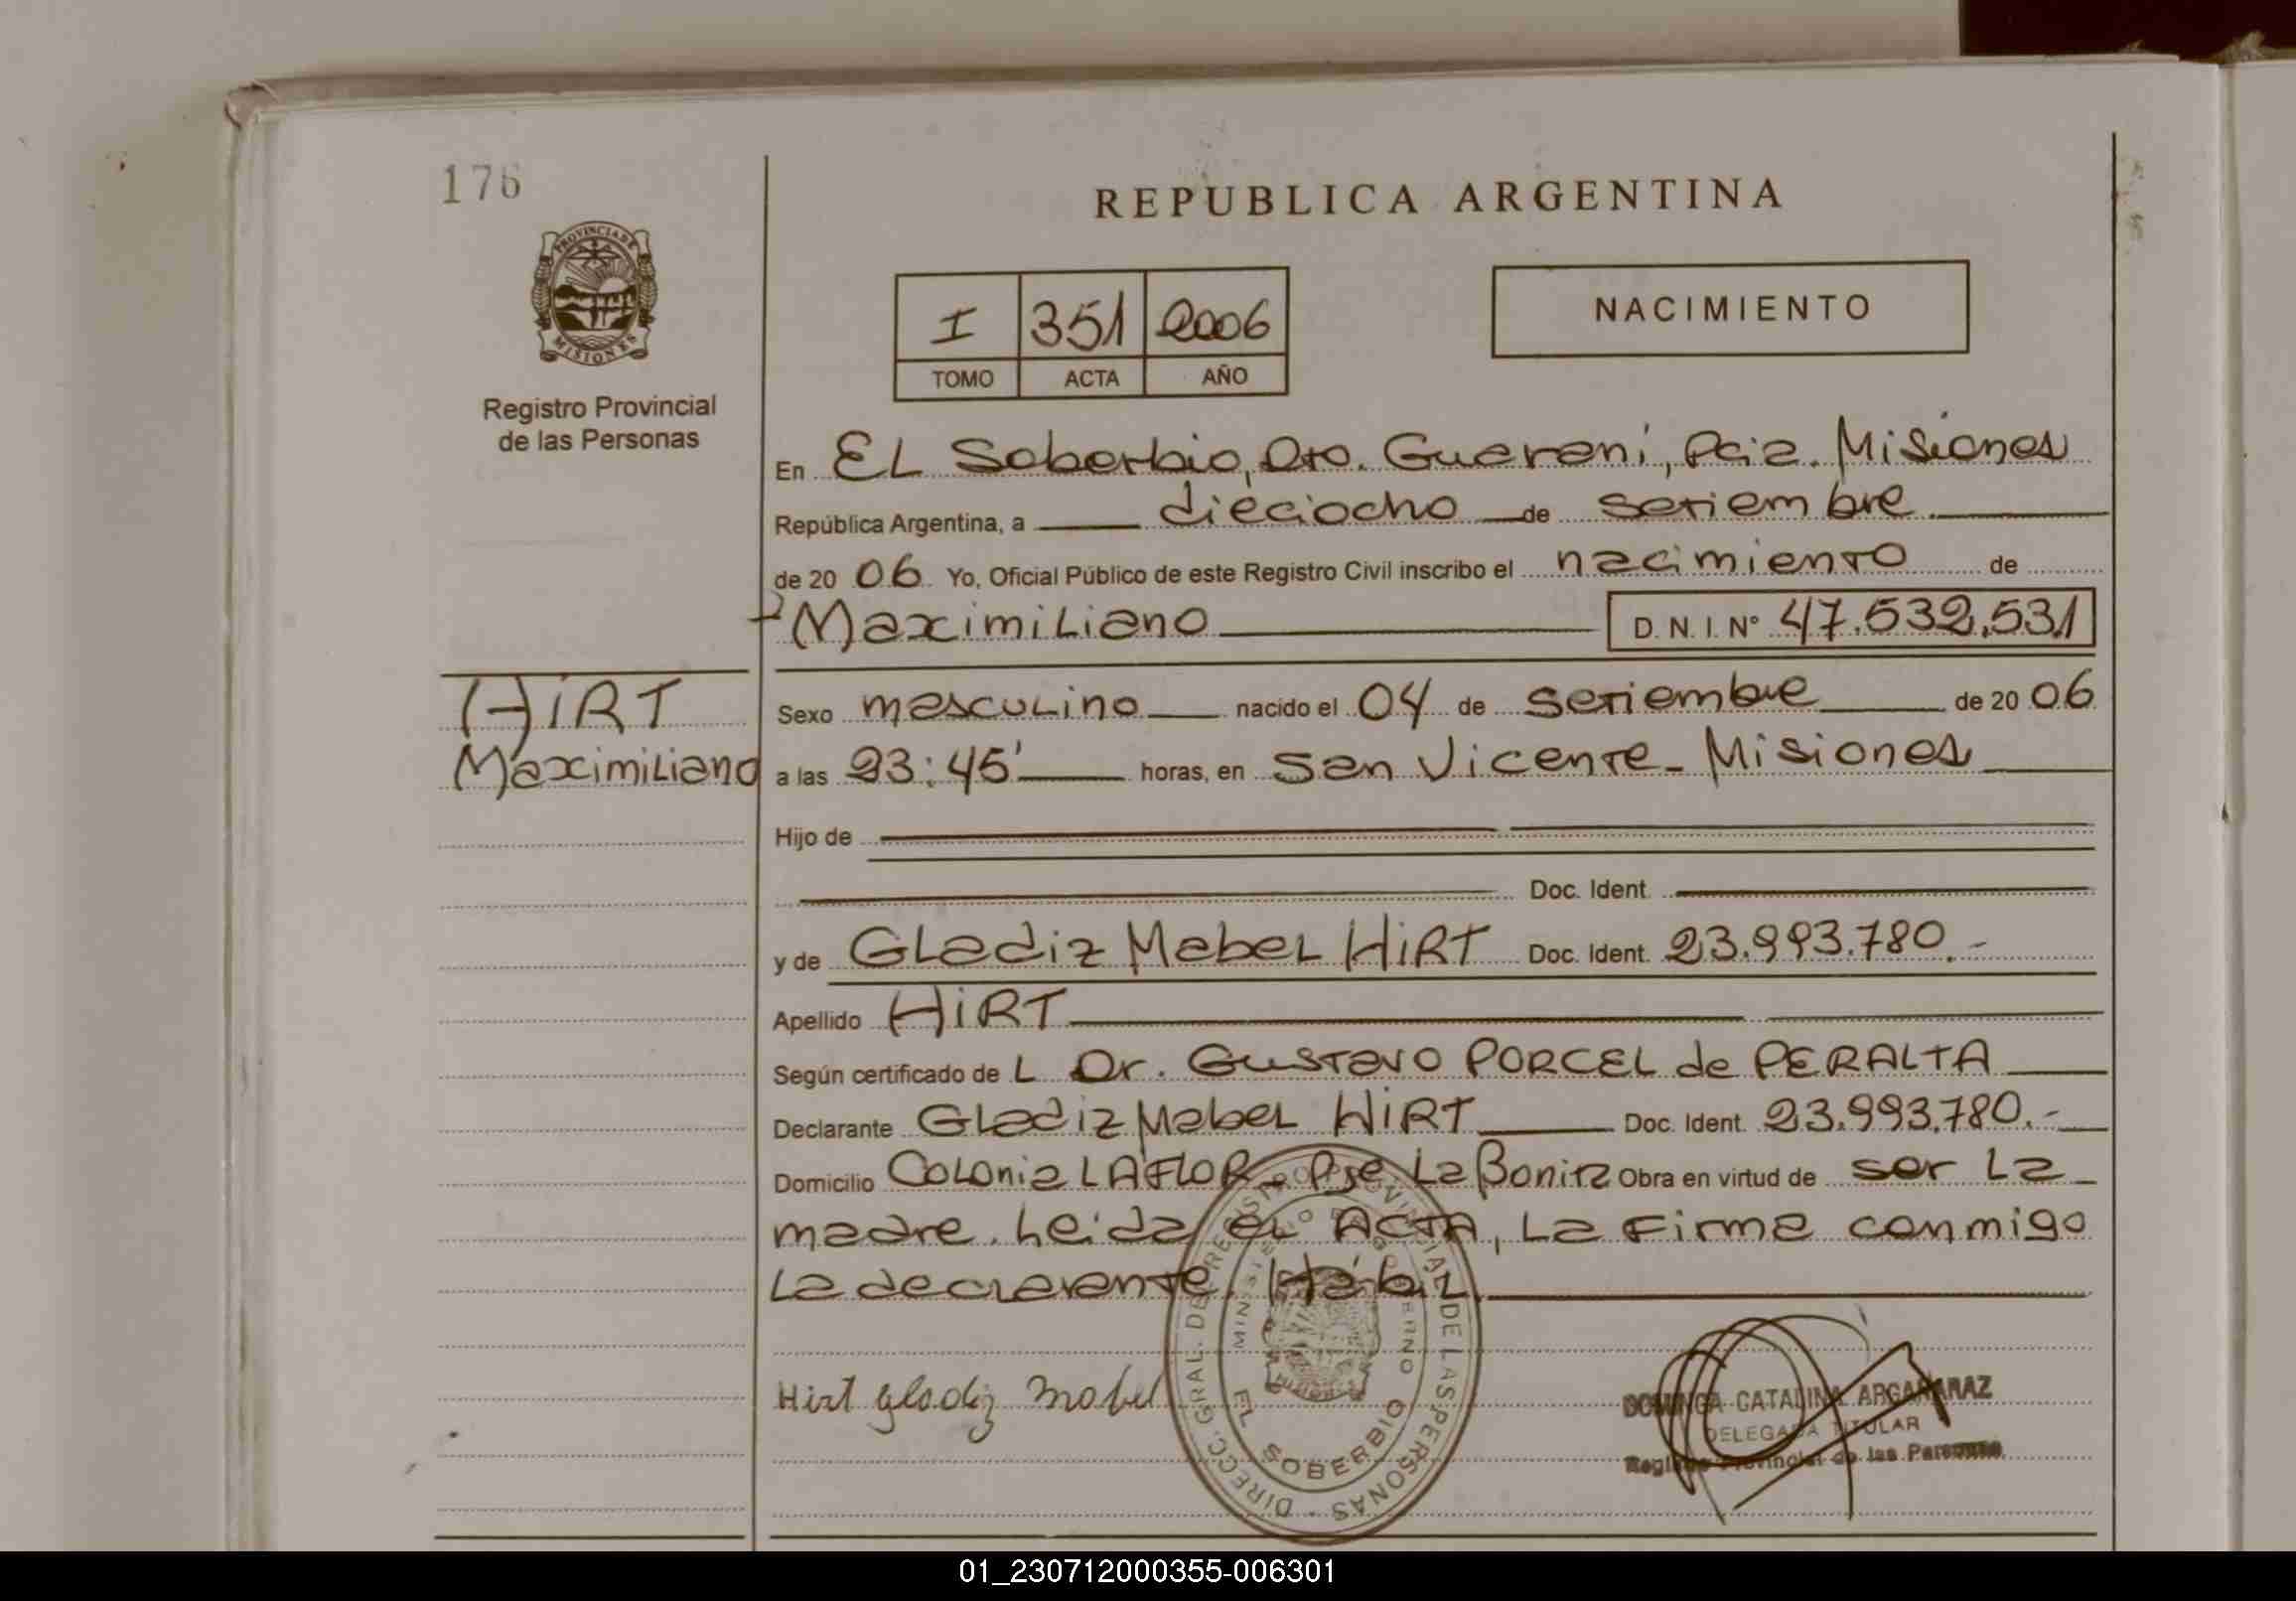 176
REPUBLICA ARGENTINA
PROVINCIA DE
MISIONES
Registro Provincial
de las Personas
I 351 2006
TOMO ACTA AÑO
NACIMIENTO
En EL Soberbio, Dto. Guarani, Pcia. Misiones
República Argentina, a dieciocho de setiembre
de 20 06 Yo, Oficial Público de este Registro Civil inscribo el nacimiento de
Maximiliano D.N.I. Nº 47.532.531
HIRT
Maximiliano
Sexo masculino nacido el 04 de setiembre de 20 06
a las 23:45' horas, en San Vicente - Misiones
Hijo de
Doc. Ident.
y de Gladiz Mabel HIRT Doc. Ident. 23.993.780.-
Apellido HIRT
Según certificado de L Dr. Gustavo PORCEL de PERALTA
Declarante Gladiz Mabel HIRT Doc. Ident. 23.993.780.-
Domicilio Colonia LA FLOR - Pje La Bonita Obra en virtud de ser La
madre. Leida el ACTA, La Firma conmigo
La declarante. Hábil
Hirt Gladiz Mabel
DIRECC. GRAL. DEL REGISTRO PROVINCIAL DE LAS PERSONAS
MINISTERIO DE GOBIERNO
EL SOBERBIO
DOMINGA CATALINA ARGAÑARAZ
DELEGADA TITULAR
Registro Provincial de las Personas
01_230712000355-006301